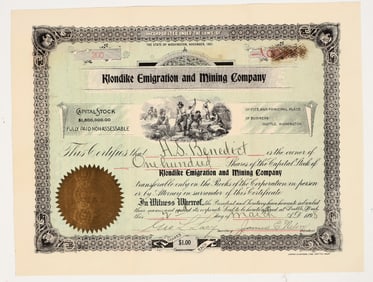 INCORPORATED UNDER THE LAWS OF
THE STATE OF WASHINGTON, NOVEMBER, 1897.
Klondike Emigration and Mining Company
CAPITAL STOCK
$1,500,000.00
FULLY PAID NON-ASSESSABLE
OFFICE AND PRINCIPAL PLACE
OF BUSINESS
SEATTLE, WASHINGTON.
This Certifies that H.S. Benedict is the owner of
One hundred Shares of the Capital Stock of
Klondike Emigration and Mining Company
transferable only on the Books of the Corporation in person
or by Attorney on surrender of this Certificate
In Witness Whereof, the President and Secretary have hereunto subscribed
their names and caused the corporate Seal to be hereto affixed at Seattle, Wash.
day of March A.D. 189
$1.00